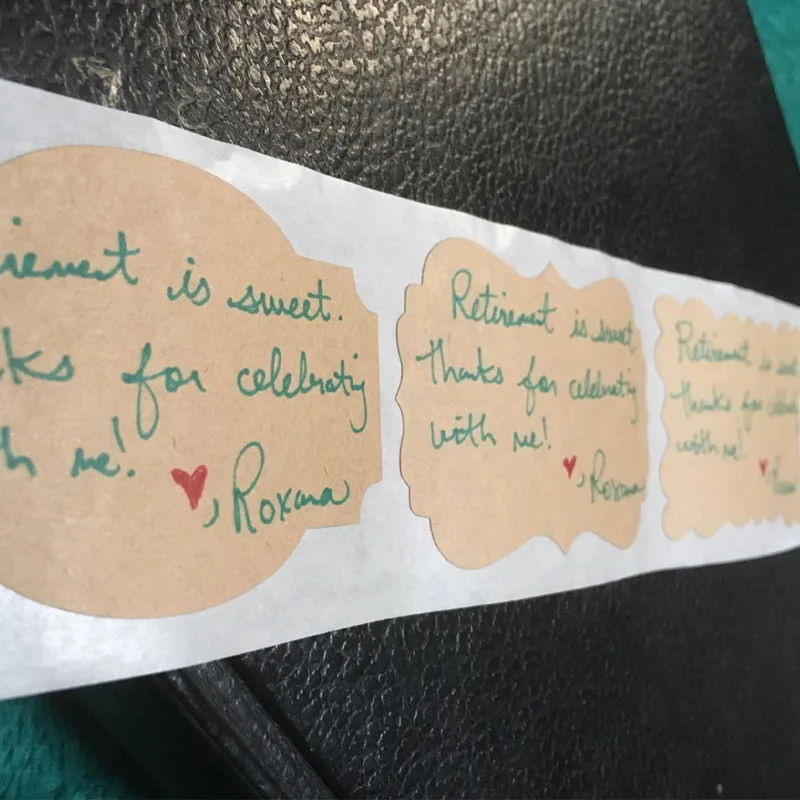 irement is sweet.
ks for celebrating
h me!
♥, Roxana
Retirement is sweet
Thanks for celebrating
with me!
♥, Roxana
Retirement is sweet
Thanks for
with me!
♥, Roxana